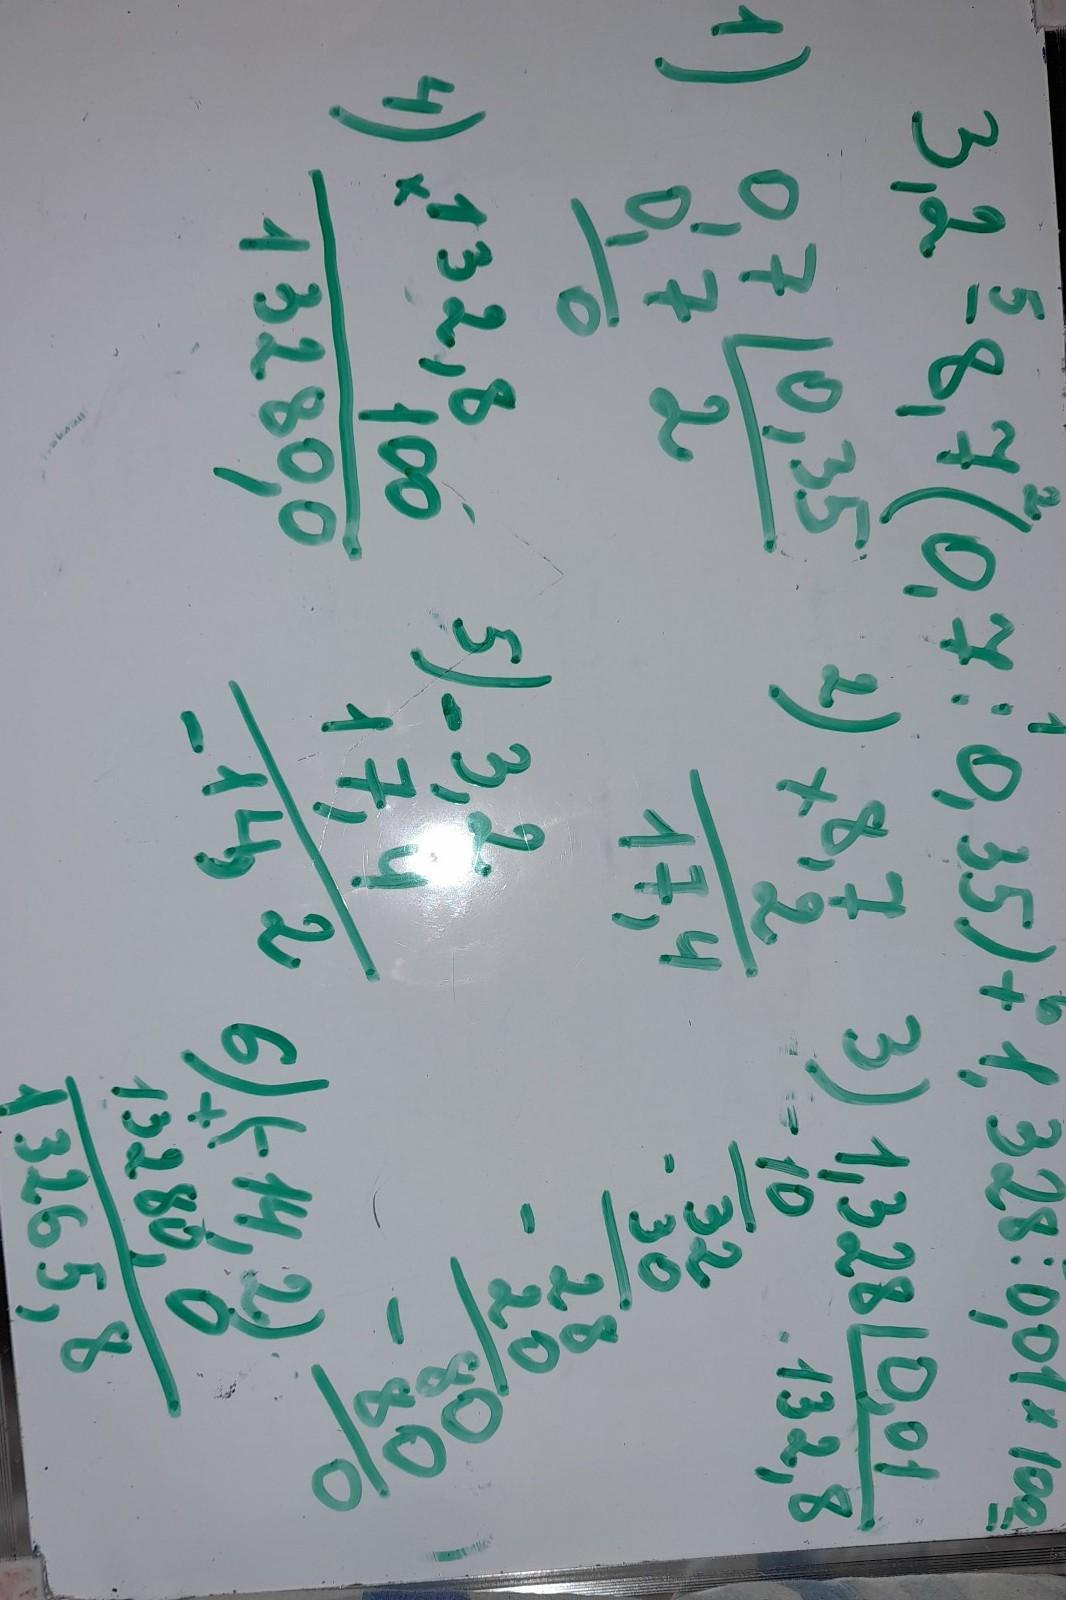 5 2 1 6
3,2 - 8,7(0,7:0,35)+1,328:0,01×100=
1) 0,7 | 0,35
0,7 2
0
2) × 8,7
2
17,4
3) - 1,328 | 0,01
10 132,8
- 32
30
- 28
20
- 80
80
0
4) × 132,8
100
13280,0
5) - 3,2
17,4
-14,2
6) + (-14,2)
13280,0
13265,8